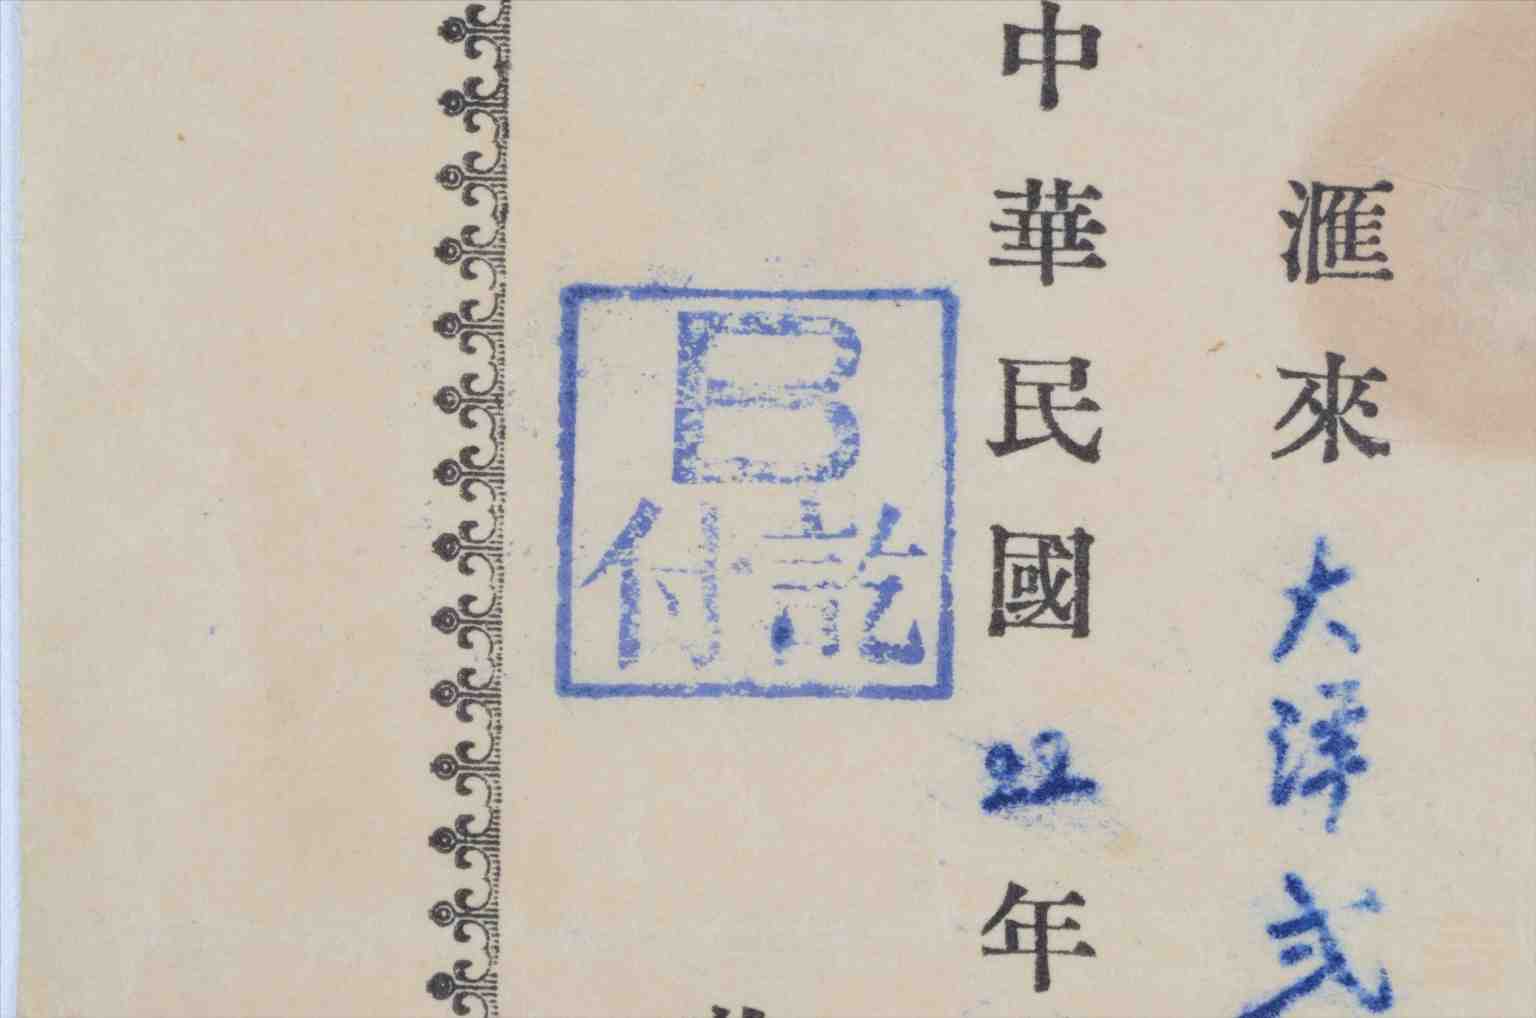 滙來大洋弍
中華民國22年
B
付訖